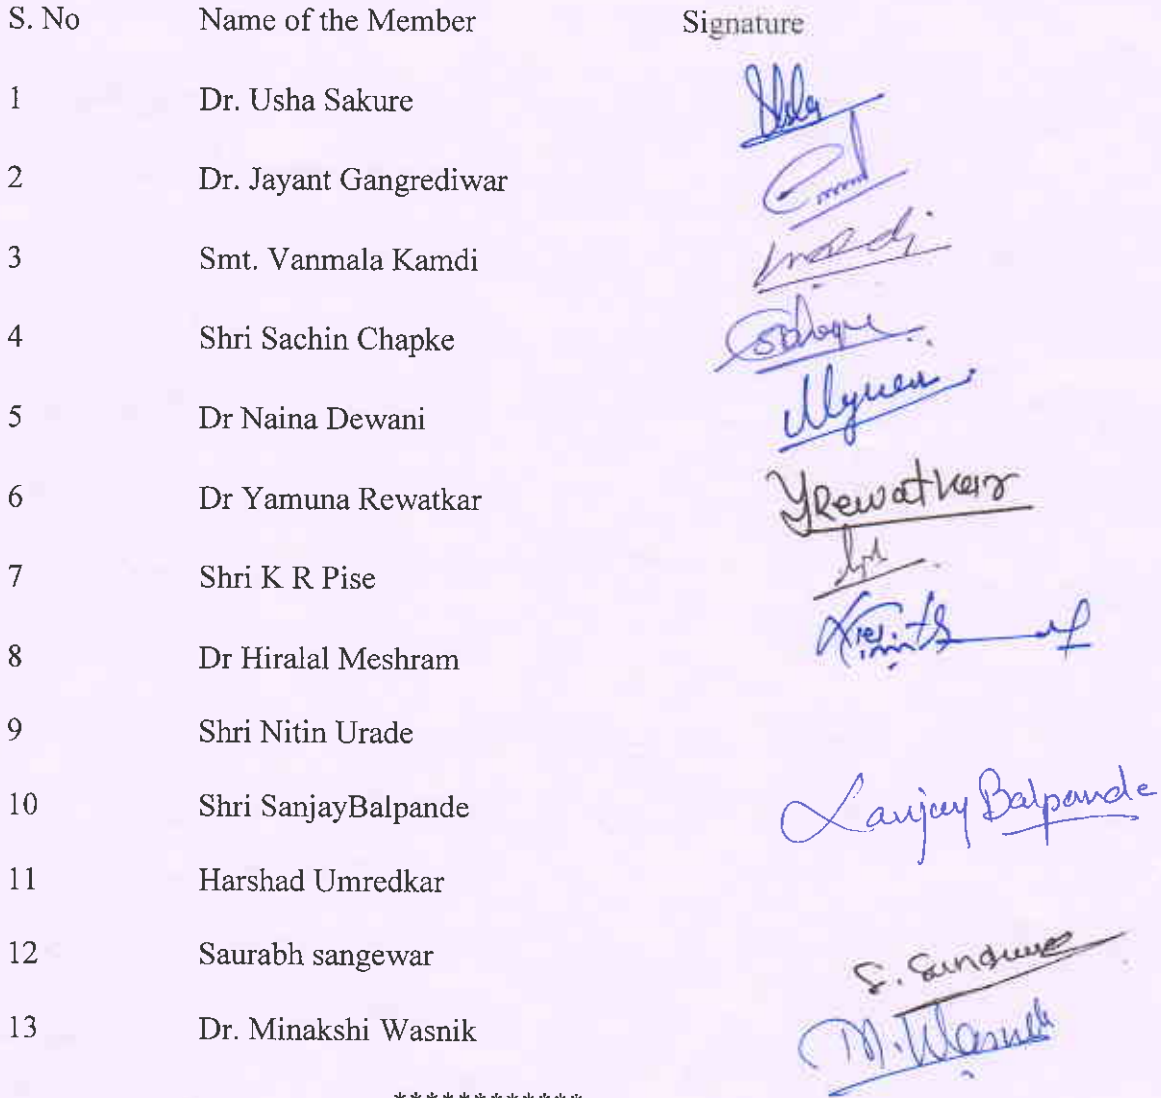 S. No Name of the Member Signature
1 Dr. Usha Sakure
2 Dr. Jayant Gangrediwar
3 Smt. Vanmala Kamdi
4 Shri Sachin Chapke
5 Dr Naina Dewani
6 Dr Yamuna Rewatkar YRewatkar
7 Shri K R Pise
8 Dr Hiralal Meshram
9 Shri Nitin Urade
10 Shri SanjayBalpande Sanjay Balpande
11 Harshad Umredkar
12 Saurabh sangewar S.
13 Dr. Minakshi Wasnik M. Wasnik
************